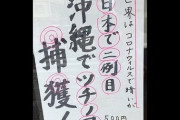 世界は コロナウイルスで暗いが
日本で二例目
沖縄でツチノコ
捕獲！
500円